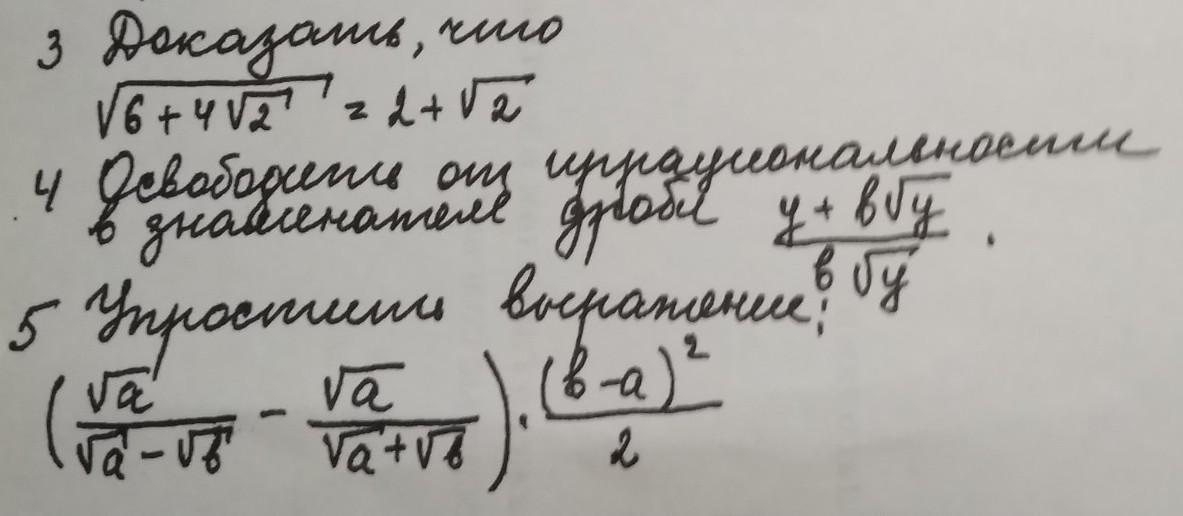 3 Доказать, что
√(6 + 4√2) = 2 + √2
4 Освободить от иррациональности
в знаменателе дроби (y + b√y)/(b√y).
5 Упростить выражение:
(√a/(√a − √b) − √a/(√a + √b)) · (b − a)²/2